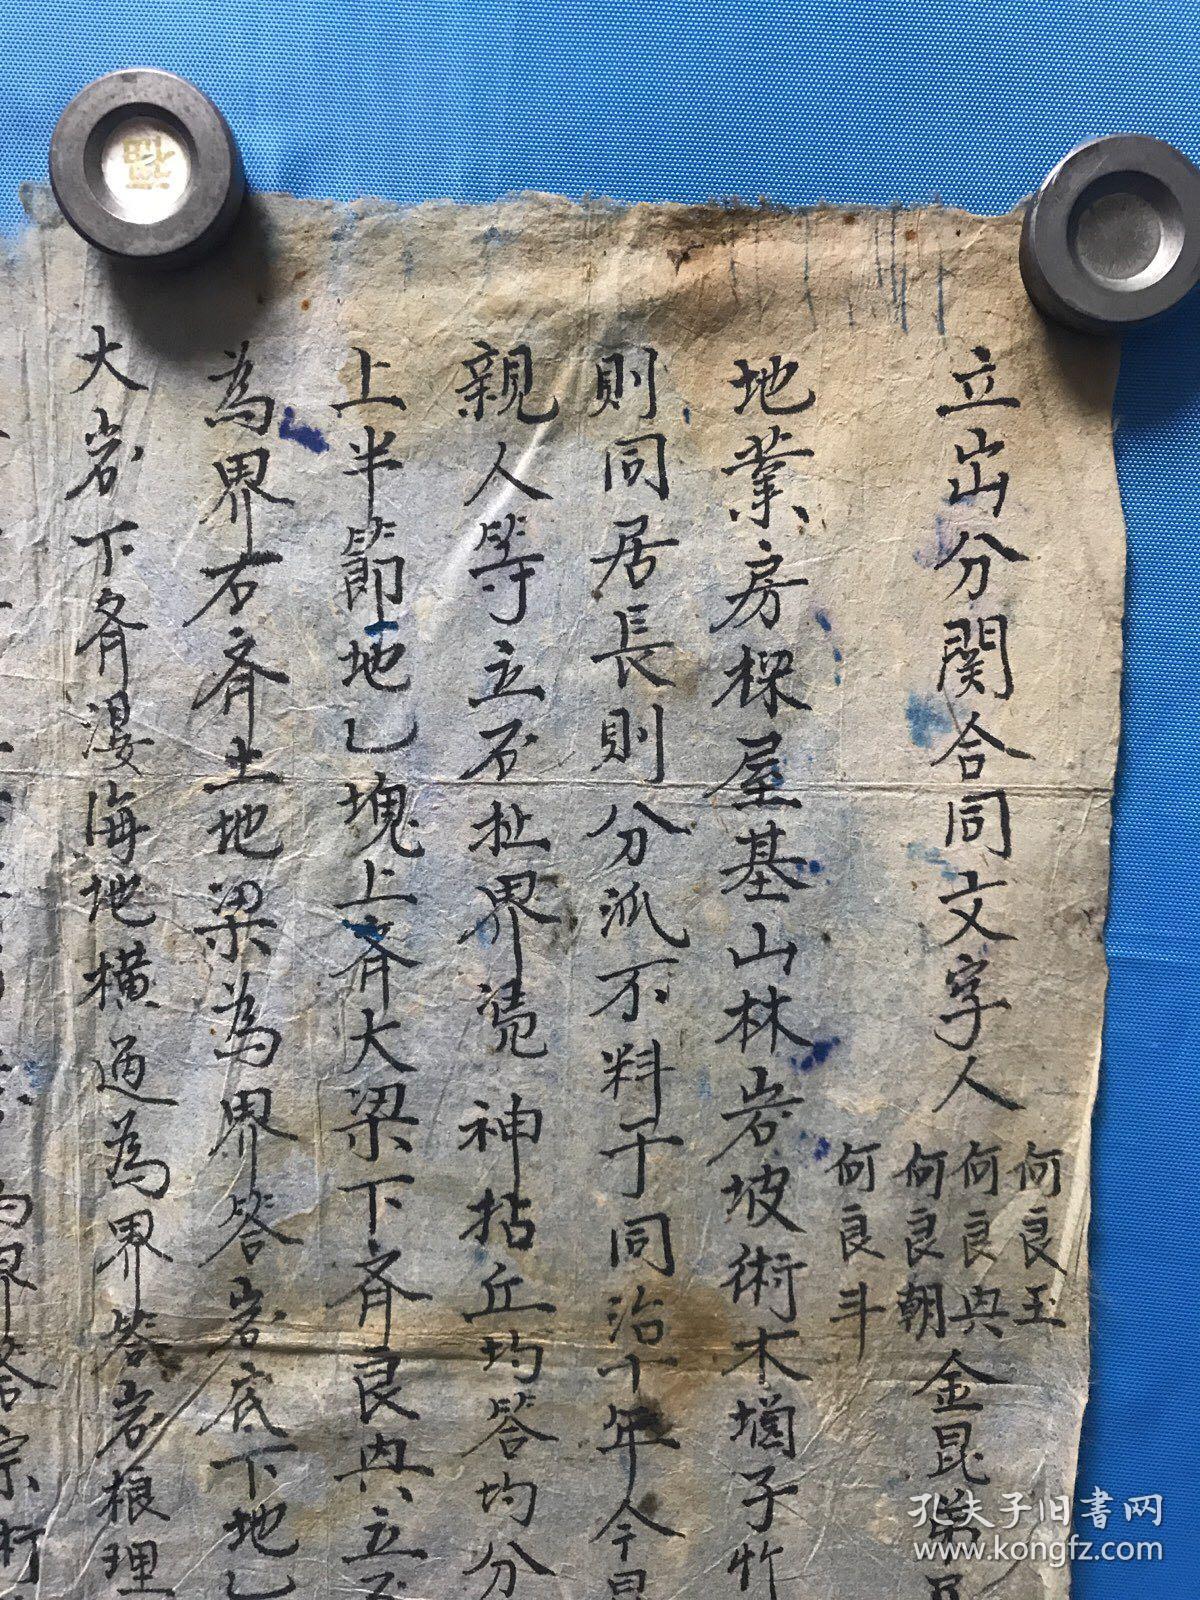 立出分関合同文字人
何良玉
何良㒷
何良朝
何良斗
金昆弟
地業房樑屋基山林岩坡術木墻子竹
則同居長則分派不料于同治十年今
親人等立不扯界凴神拈丘均答均分
上半節地乚塊上斉大梁下斉良㒷立
為界右斉土地梁為界答岩底下地乚
大岩下斉漫海地橫過為界答岩根理
為界答宗
孔夫子旧書网
www.kongfz.com